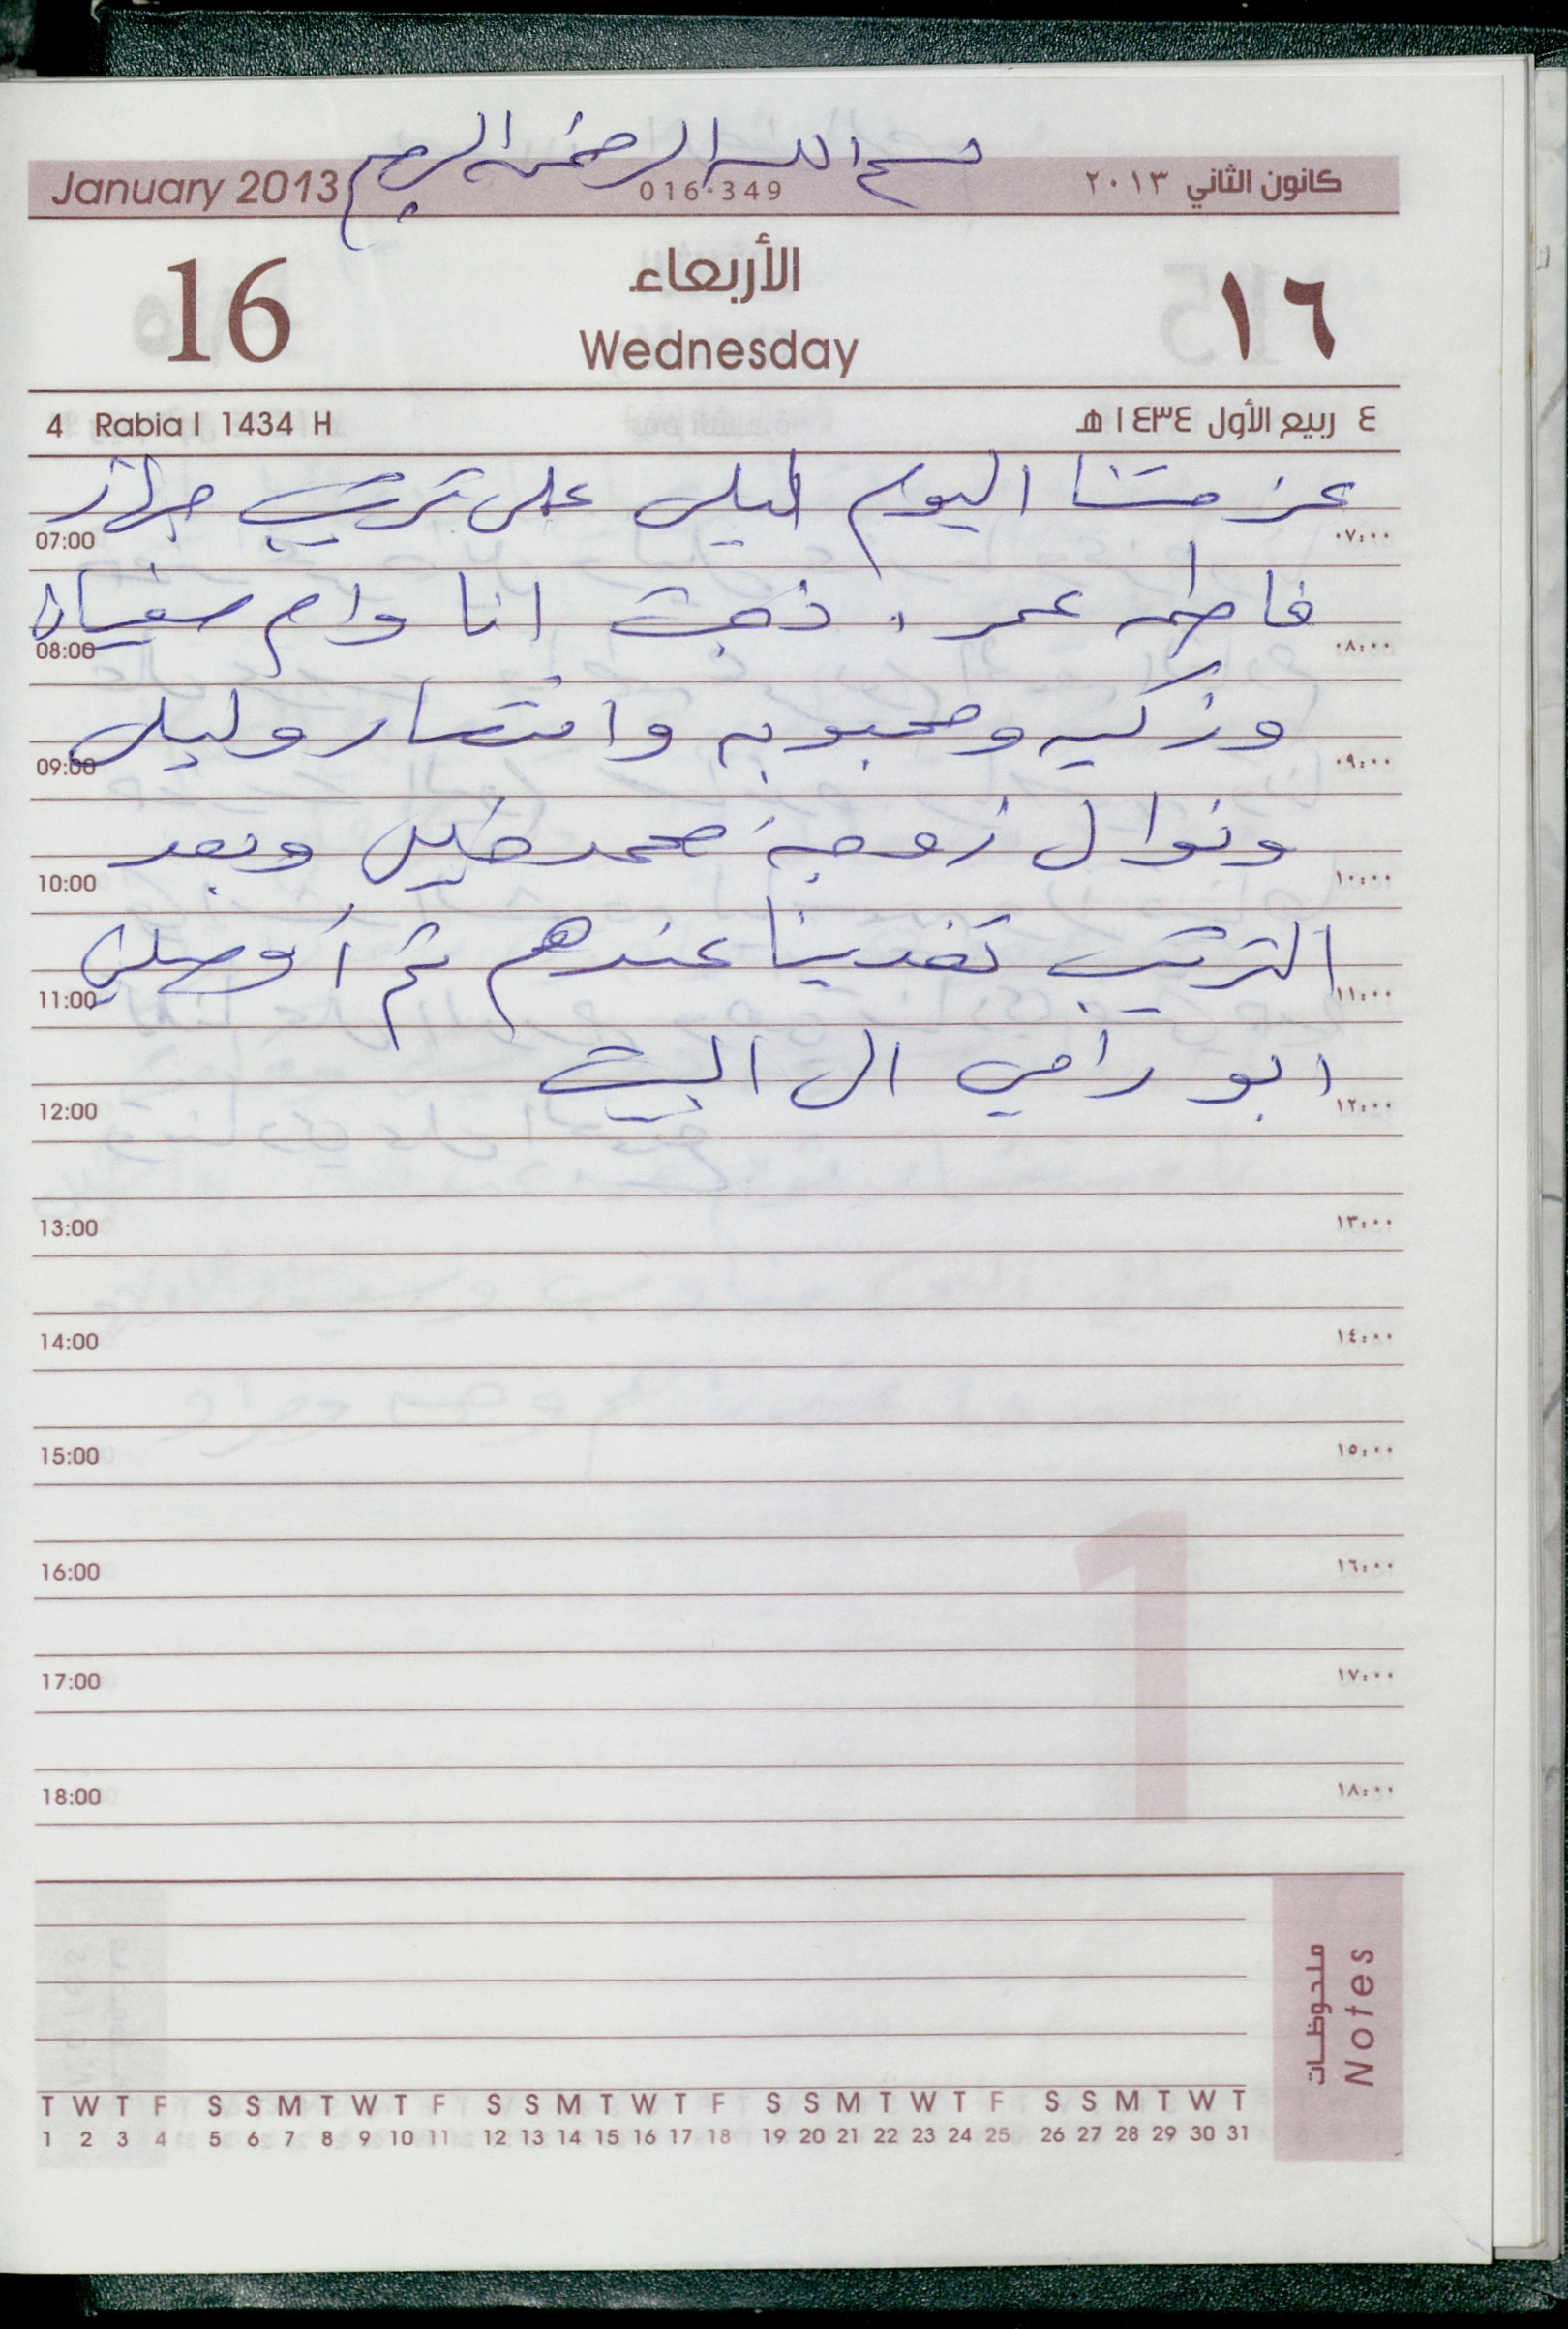 بسم الله الرحمن الرحيم
January 2013 016.349 كانون الثاني ٢٠١٣
16 الأربعاء ١٦
Wednesday
4 Rabia I 1434 H ٤ ربيع الأول ١٤٣٤ هـ
عزمتنا اليوم ليلى على ترتيب جهاز
07:00 ٠٧:٠٠
فاطمه عمر ، ذهبت انا وام سفيان
08:00 ٠٨:٠٠
وزكيه ومحبوبه وانتصار وليلى
09:00 ٠٩:٠٠
ونوال زوجة محمد خليل وبعد
10:00 ١٠:٠٠
الترتيب تغدينا عندهم ثم أوصلني
11:00 ١١:٠٠
ابو رامي الى البيت
12:00 ١٢:٠٠
13:00 ١٣:٠٠
14:00 ١٤:٠٠
15:00 ١٥:٠٠
16:00 ١٦:٠٠
17:00 ١٧:٠٠
18:00 ١٨:٠٠
1
ملحوظات
Notes
T W T F S S M T W T F S S M T W T F S S M T W T F S S M T W T
1 2 3 4 5 6 7 8 9 10 11 12 13 14 15 16 17 18 19 20 21 22 23 24 25 26 27 28 29 30 31